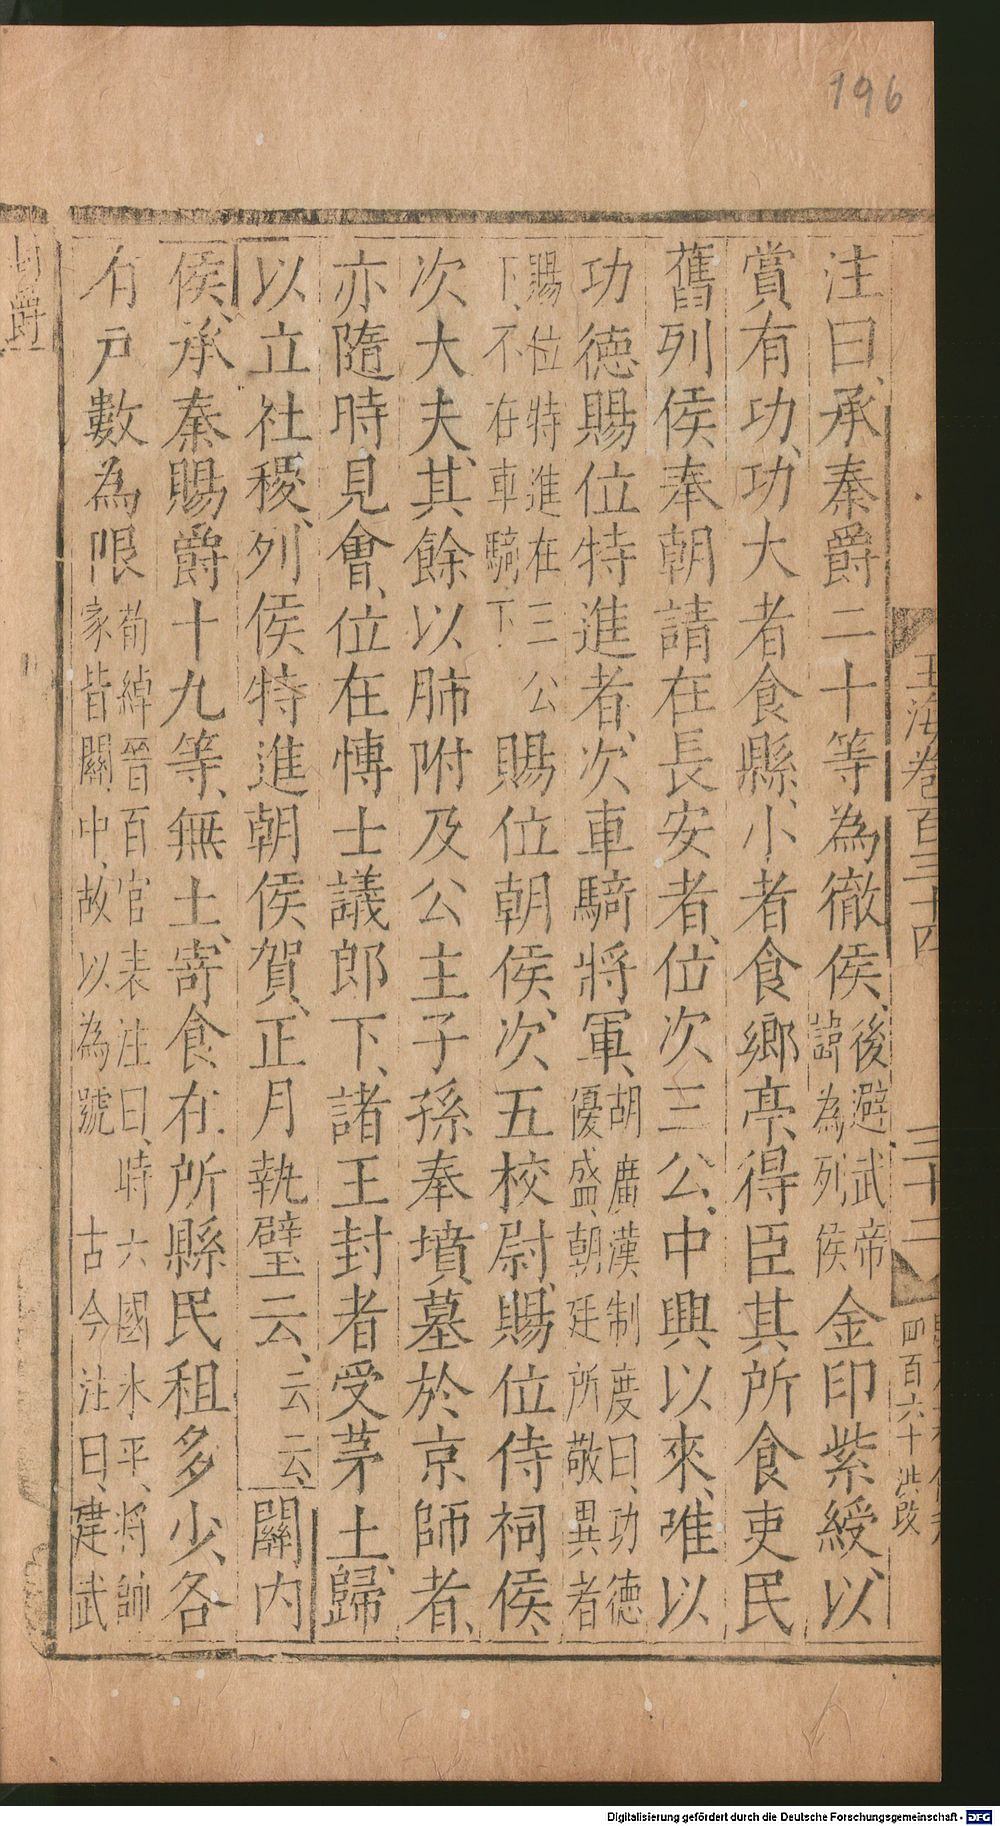 196
玉海卷百三十四
三十二
四百六十 洪改
注曰承秦爵二十等為徹侯後避武帝諱為列侯金印紫綬以
賞有功功大者食縣小者食鄉亭得臣其所食吏民
舊列侯奉朝請在長安者位次三公中興以來唯以
功德賜位特進者次車騎將軍胡廣漢制度曰功德優盛朝廷所敬異者
賜位特進在三公下不在車騎下賜位朝侯次五校尉賜位侍祠侯
次大夫其餘以肺附及公主子孫奉墳墓於京師者
亦隨時見會位在愽士議郎下諸王封者受茅土歸
以立社稷列侯特進朝侯賀正月執璧云云云關内
侯承秦賜爵十九等無土寄食在所縣民租多少各
有戶數為限荀綽晉百官表注曰時六國未平將帥家皆關中故以為號古今注曰建武
封爵
Digitalisierung gefördert durch die Deutsche Forschungsgemeinschaft - DFG